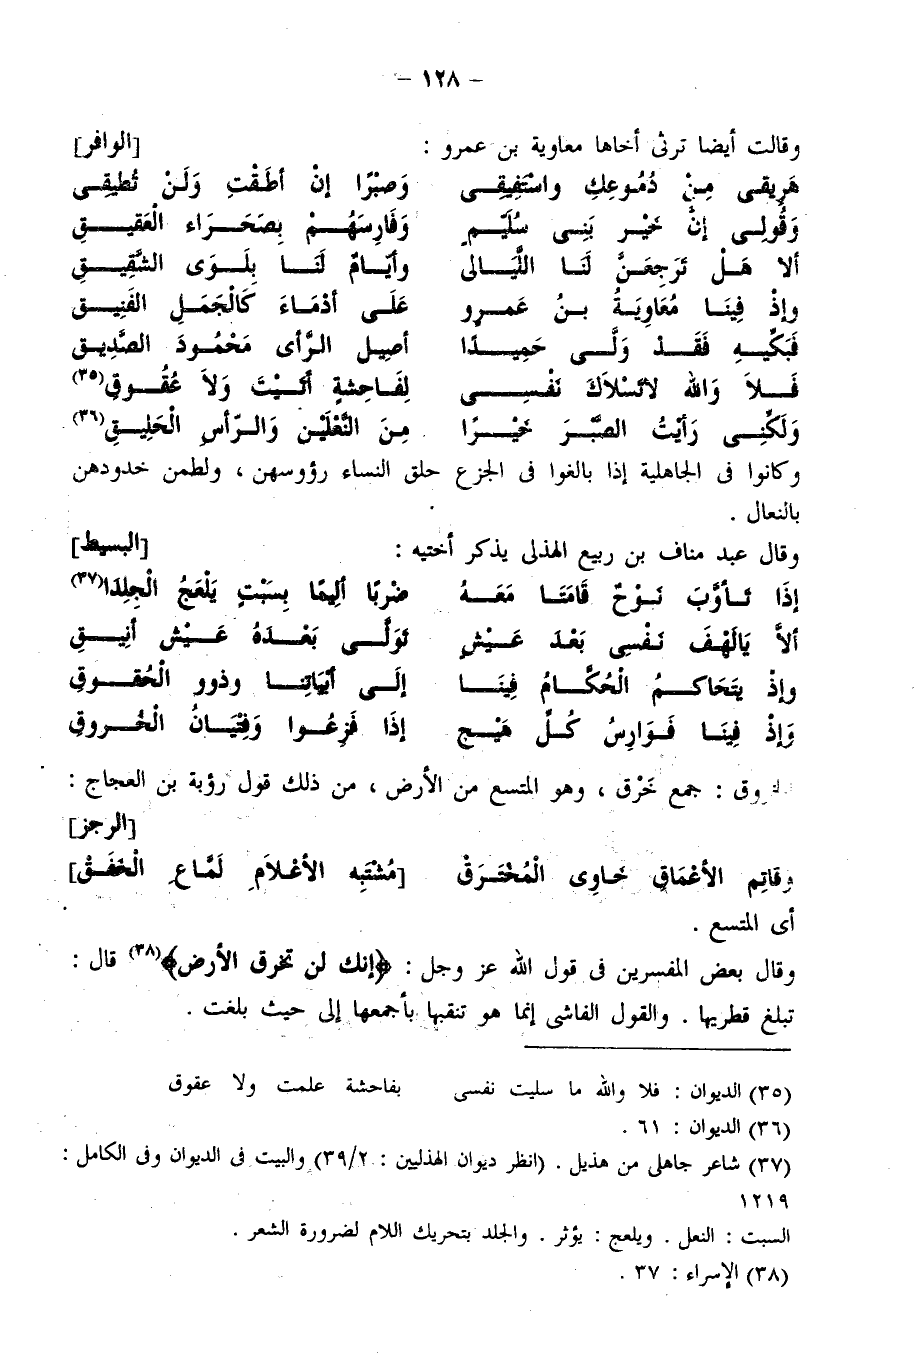 – ١٢٨ –
وقالت أيضا ترثى أخاها معاوية بن عمرو : [الوافر]
هَرِيقى مِنْ دُمُوعِكِ واسْتَفِيقِــى وَصبْرًا إنْ أطَقْتِ وَلَنْ تُطيقِـى
وَقُولِــى إنَّ خَيْــرَ بَنِــى سُلَيْــمٍ وَفَارِسَهُــمْ بِصَحَــرَاء الْعَقيــقِ
ألا هَــلْ تَرجِعَــنَّ لَنَــا اللَّيَــالى وأيَّــامٌ لَنَــا بِلَــوَى الشَّقِيــقِ
وإذْ فِينَــا مُعَاوِيَةُ بــنُ عَمــرٍو عَلَــى أدْمَــاءَ كَالْجَمَــلِ الفَنِيــقِ
فَبَكِّيــهِ فَقَــدْ وَلَّــى حَمِيــدًا أصِيــلَ الــرَّأى مَحْمُــودَ الصَّدِيــق
فَــلاَ وَالله لاَتَسْلاَكَ نَفْســى لِفَـاحِشةٍ أتَـيْتَ وَلاَ عُقُــوقِ(٣٥)
وَلَكِنِّــى رَأيْتُ الصَّبْــرَ خَيْــرًا مِـنَ النَّعْلَيْـنِ وَالــرّأسِ الْحَلِيــقِ(٣٦)
وكانوا فى الجاهلية إذا بالغوا فى الجزع حلق النساء رؤوسهن ، ولطمن خدودهن
بالنعال .
وقال عبد مناف بن ربيع الهذلى يذكر أختيه : [البسيط]
إذَا تَــأوَّبَ نَــوْحٌ قَامَتَــا مَعَــهُ ضرْبًا ألِيمًا بِسَبْتٍ يَلْعَجُ الْجِلِدَا(٣٧)
ألاَّ يَالَهْـفَ نَـفْسِى بَعْـدَ عَــيْشٍ تَوَلَّــى بَعْــدَهُ عَــيْش أنِيــقِ
وإذْ يتَحَاكــمُ الْحُكَّــامُ فِينَــا إلَــى أبْيَاتِنــا وذوو الْحُقــوقِ
وَإذْ فِينَــا فَــوَارِسُ كُــلِّ هَيْــجٍ إذَا فَزِعُــوا وَفِتْيَــانُ الْخُــروقِ
روق : جمع خَرْق ، وهو المتسع من الأرض ، من ذلك قول رؤبة بن العجاج :
[الرجز]
وقاتِمِ الأعْمَاقِ خَـاوِى الْمُخْتَـرَقْ [مُشْتَبِه الأعْلاَمِ لَمَّـاعِ الْخَفَـقْ]
أى المتسع .
وقال بعض المفسرين فى قول الله عز وجل : ﴿إنك لن تخرق الأرض﴾(٣٨) قال :
تبلغ قطريها . والقول الفاشى إنما هو تنقبها بأجمعها إلى حيث بلغت .
(٣٥) الديوان : فلا والله ما سليت نفسى بفاحشة علمت ولا عقوق
(٣٦) الديوان : ٦١ .
(٣٧) شاعر جاهلى من هذيل . (انظر ديوان الهذليين : ٣٩/٢) والبيت فى الديوان وفى الكامل :
١٢١٩
السبت : النعل . ويلعج : يؤثر . والجلد بتحريك اللام لضرورة الشعر .
(٣٨) الإسراء : ٣٧ .